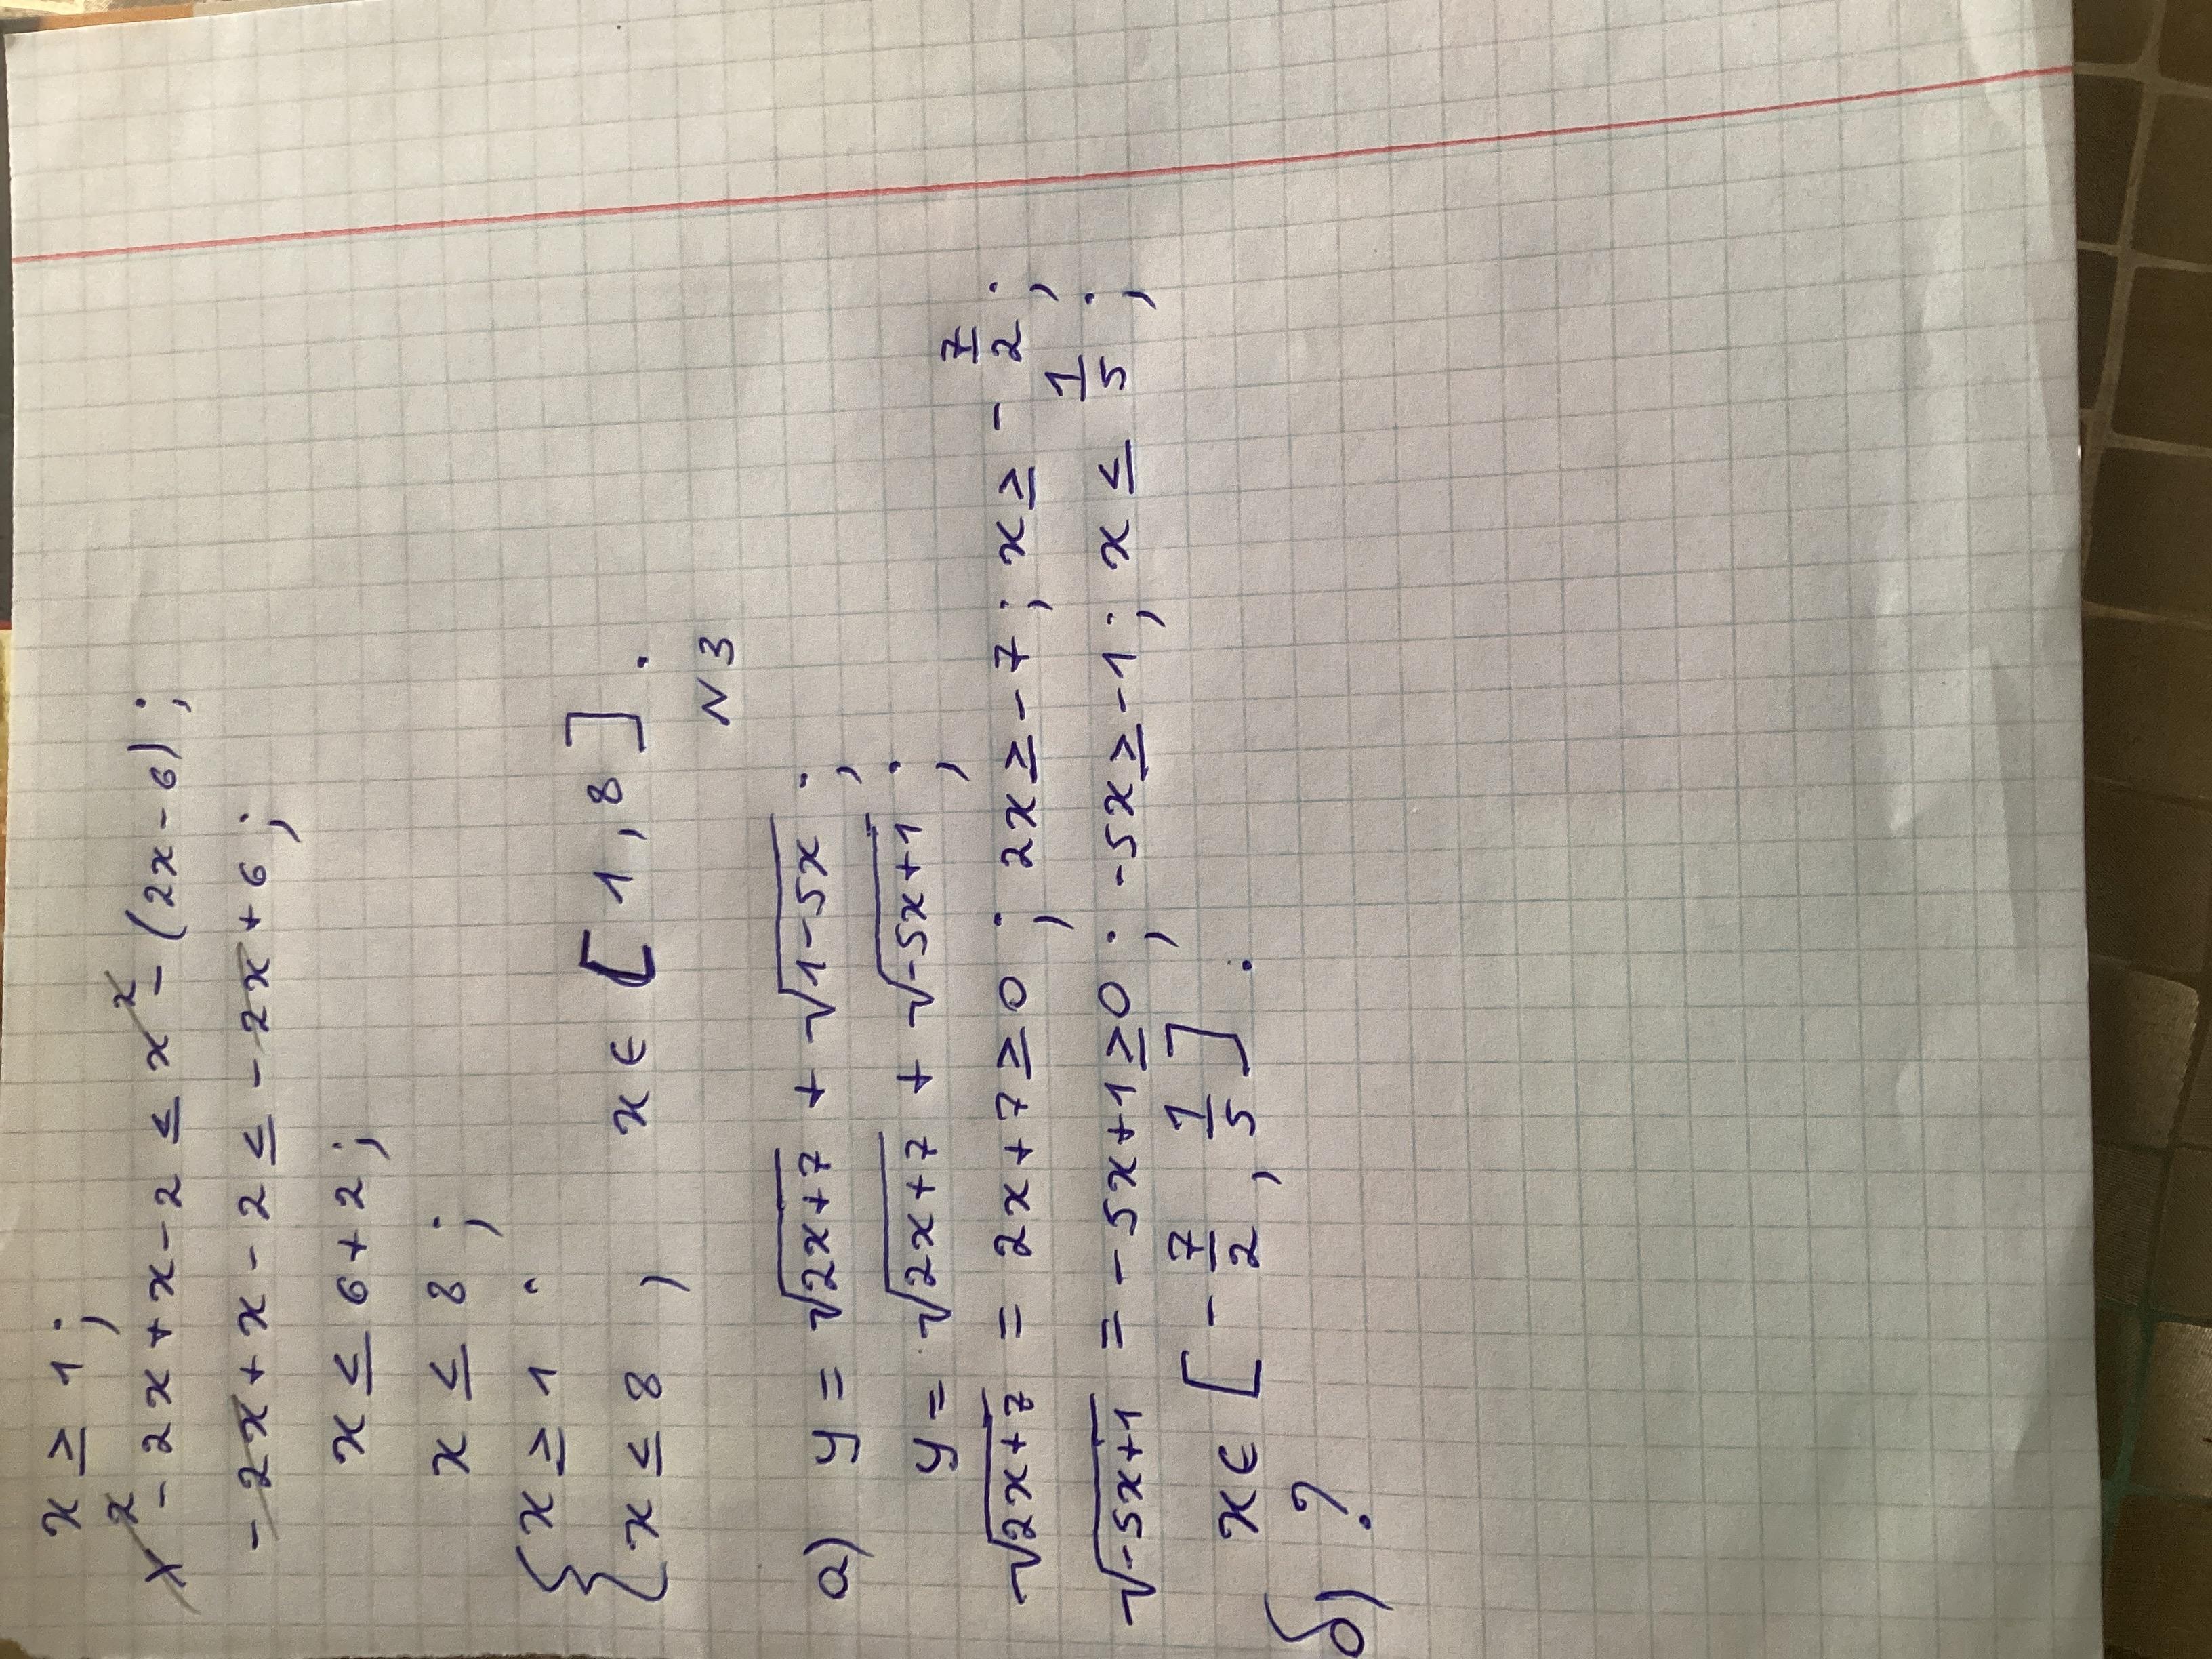 x ≥ 1;
x² - 2x + x - 2 ≤ x² - (2x - 6);
- 2x + x - 2 ≤ - 2x + 6;
x ≤ 6 + 2;
x ≤ 8;
{ x ≥ 1 .
x ≤ 8 , x ∈ [1, 8].
N 3
а) y = √2x+7 + √1-5x;
y = √2x+7 + √-5x+1;
√2x+7 = 2x+7 ≥ 0; 2x ≥ -7; x ≥ - 7/2;
√-5x+1 = -5x+1 ≥ 0; -5x ≥ -1; x ≤ 1/5;
x ∈ [- 7/2, 1/5].
б) ?